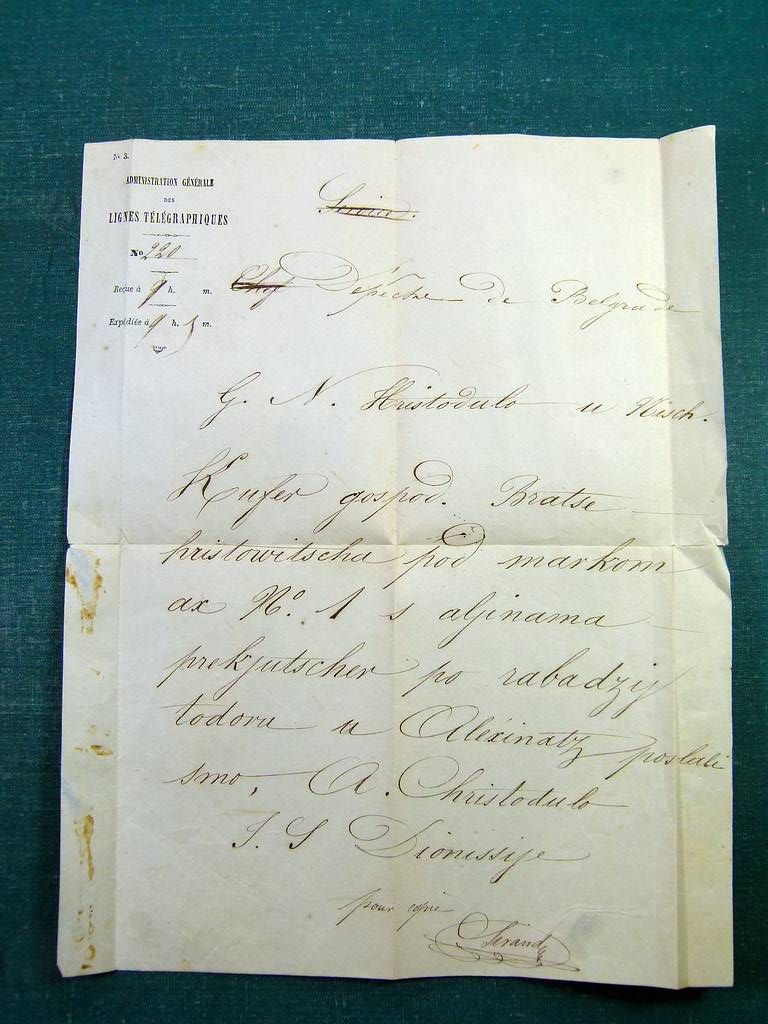 N. 3.
ADMINISTRATION GÉNÉRALE
DES
LIGNES TÉLÉGRAPHIQUES
No 220
Reçue à 9 h. m.
Expédiée à 9 h. 5 m.
Service.
Chef Dépéche de Belgrade
G. N. Hristodulo u Nisch.
Kufer gospod. Bratse
hristowitscha pod markom
ax No. 1 s aljinama
prekjutscher po rabadzij
todoru u Alexinatz poslali
smo, A. Christodulo
I. S Dionissije
pour copie